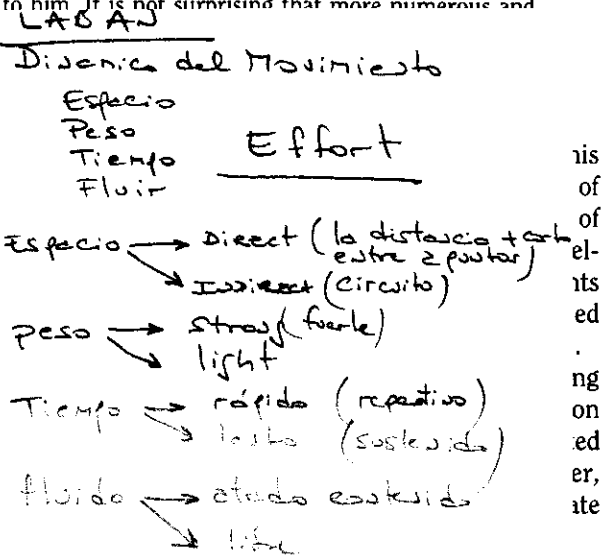 to him. It is not surprising that more numerous and
LABAN
Dinamica del Movimiento
Espacio
Peso
Tiempo
Fluir
Effort
Espacio → Direct (la distancia + corta
entre 2 puntos)
Indirect (circuito)
peso → strong (fuerte)
light
Tiempo → rápido (repentino)
lento (sostenido)
fluido → atado contenido
libre
his
of
of
el-
nts
ed
.
ng
on
ted
er,
ate